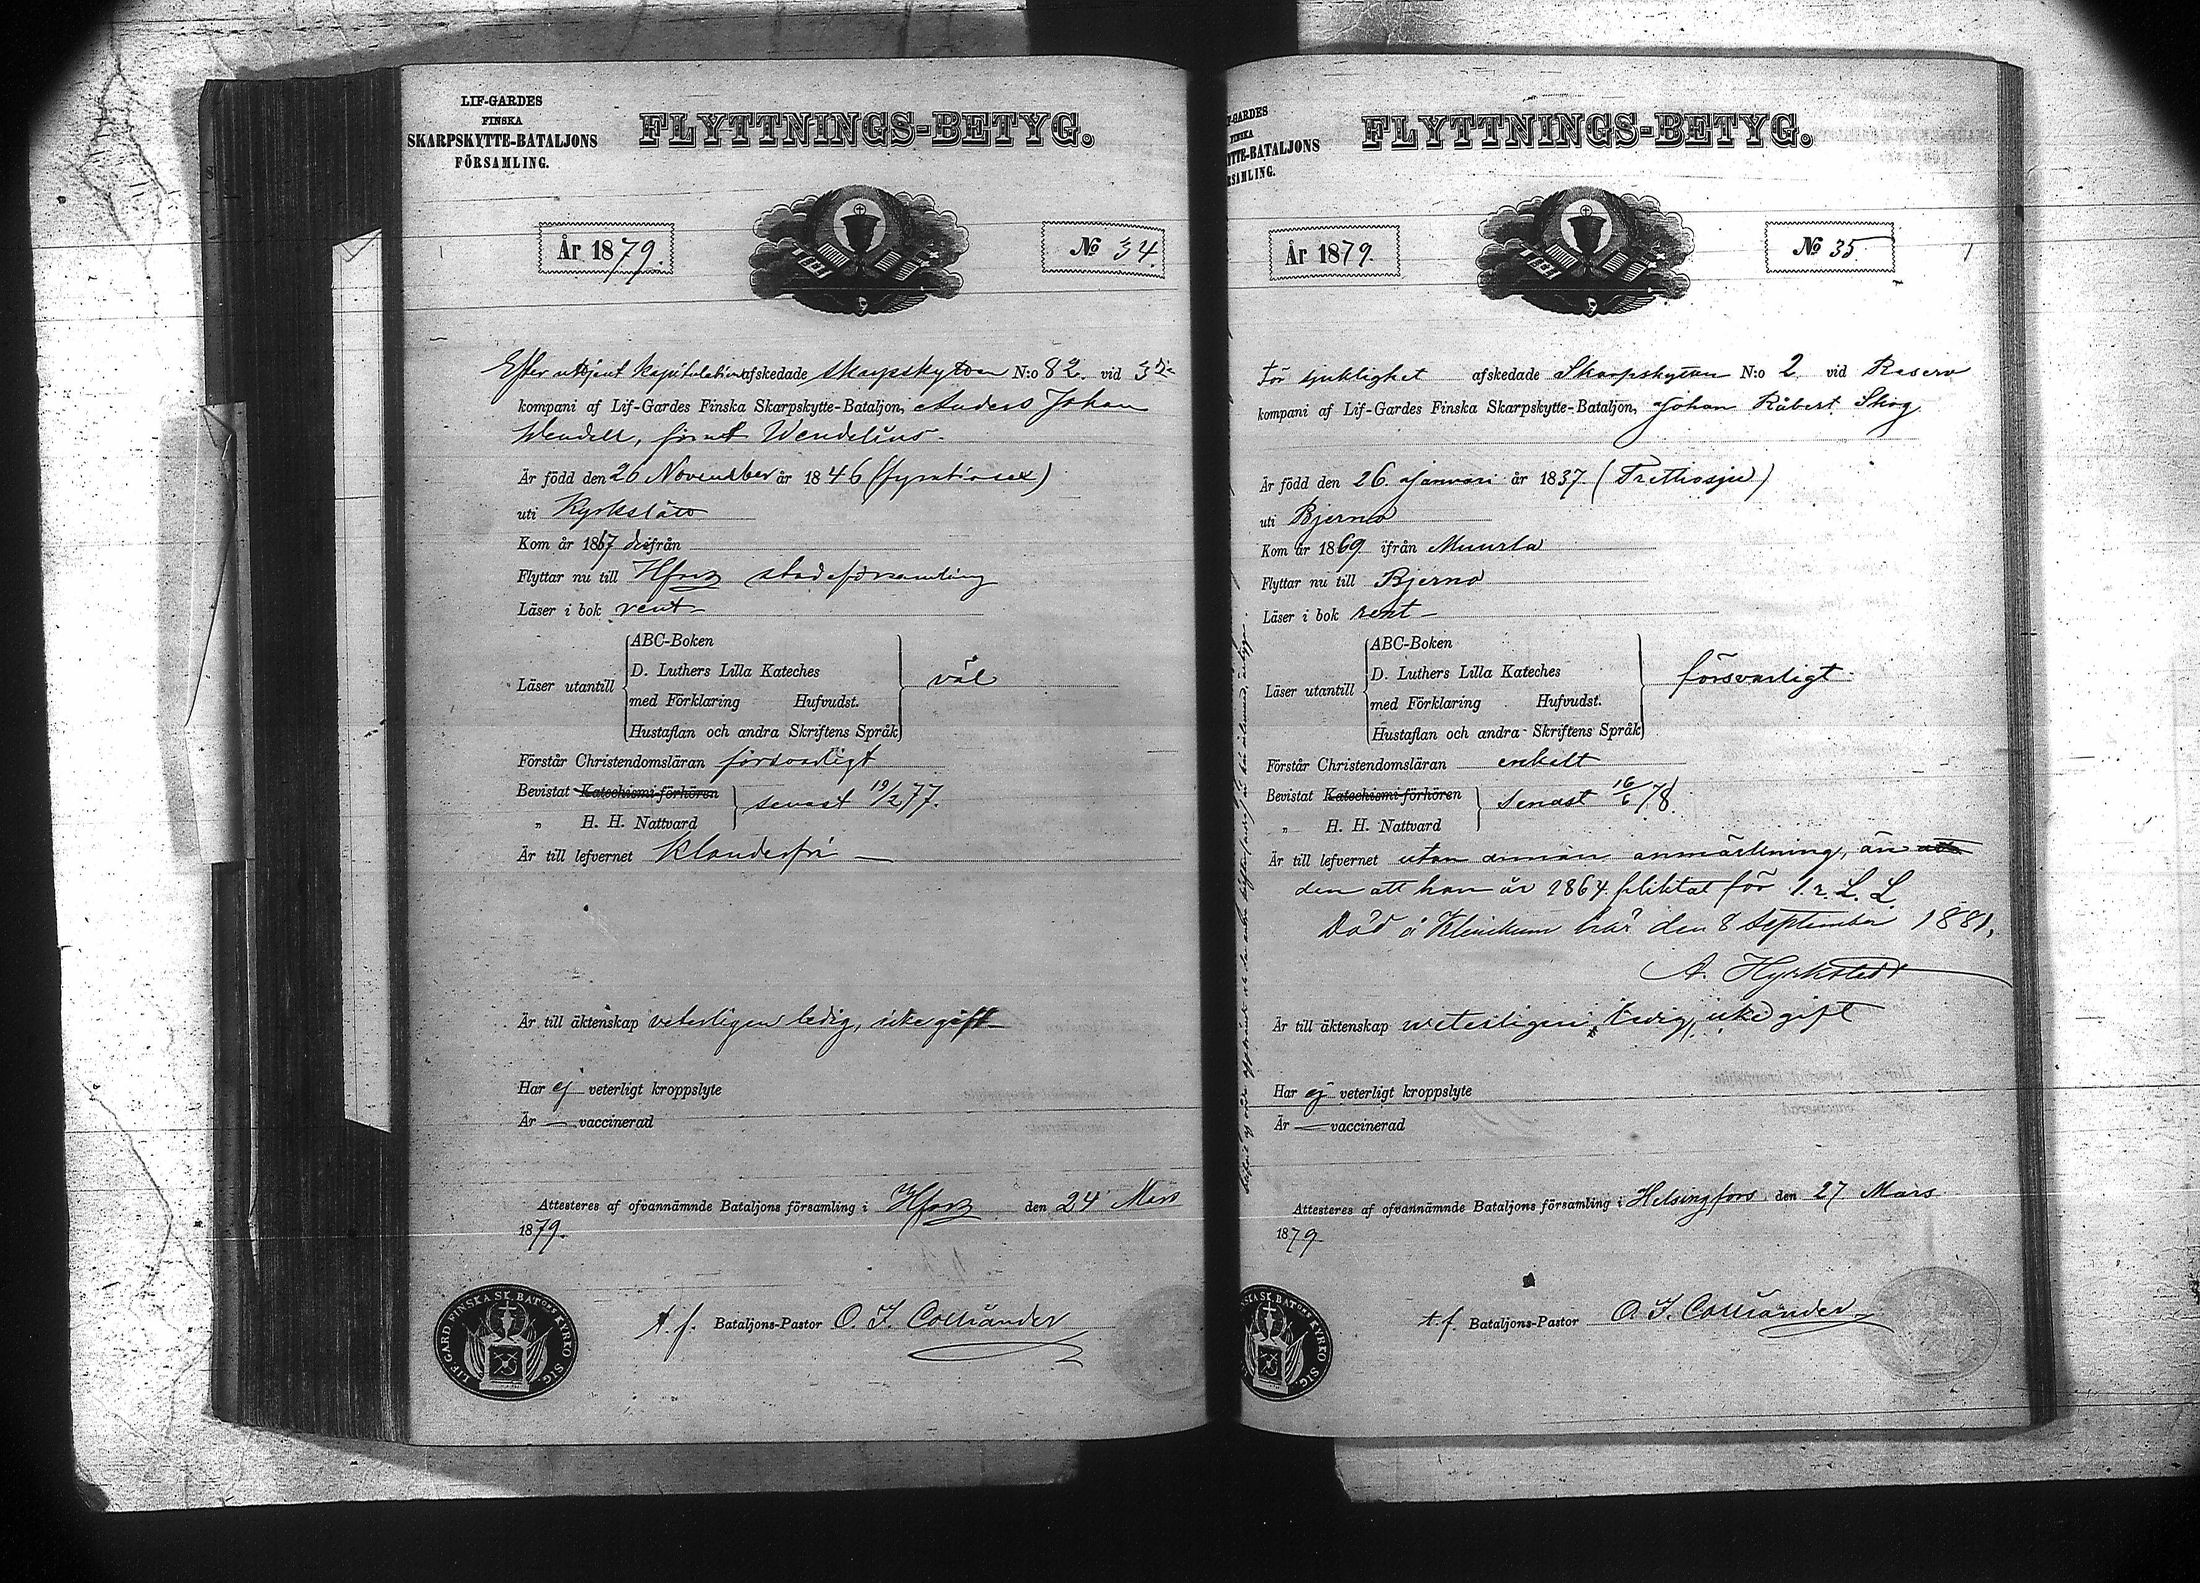 LIF-GARDES
FINSKA
SKARPSKYTTE-BATALJONS
FÖRSAMLING.
FLYTTNINGS-BETYG.
År 1879.
No 34.
Efter uttjent Kapitulation afskedade skarpskytten N:o 82 vid 3dje
kompani af Lif-Gardes Finska Skarpskytte-Bataljon, Anders Johan
Wendell, förut Wendelius.
Är född den 26 November år 1846 (fyratiosex)
uti Kyrkslätt
Kom år 1867 ifrån
Flyttar nu till Hfors stadsförsamling
Läser i bok rent
Läser utantill
ABC-Boken
D. Luthers Lilla Kateches
med Förklaring Hufvudst.
Hustaflan och andra Skriftens Språk
väl
Förstår Christendomsläran försvarligt
Bevistat Katechismi-förhören
„ H. H. Nattvard
senast 19/2 77.
Är till lefvernet klanderfri
Är till äktenskap veterligen ledig, icke gift
Har ej veterligt kroppslyte
Är — vaccinerad
Attesteres af ofvannämnde Bataljons församling i Hfors den 24 Mars
1879.
LIF GARD FINSKA SK. BATONS KYRKO SIG.
t. f. Bataljons-Pastor O. I. Colliander
F-GARDES
FINSKA
YTTE-BATALJONS
RSAMLING.
FLYTTNINGS-BETYG.
År 1879.
No 35
För sjuklighet afskedade Skarpskytten N:o 2 vid Reserv
kompani af Lif-Gardes Finska Skarpskytte-Bataljon, Johan Robert Skog
Är född den 26 Januari år 1837 (Trettiosju)
uti Bjerno
Kom år 1869 ifrån Muurla
Flyttar nu till Bjerno
Läser i bok rent
Läser utantill
ABC-Boken
D. Luthers Lilla Kateches
med Förklaring Hufvudst.
Hustaflan och andra Skriftens Språk
försvarligt
Förstår Christendomsläran enkelt
Bevistat Katechismi-förhören
„ H. H. Nattvard
senast 16/6 78
Är till lefvernet utan annan anmärkning, än
den att han år 1864 pliktat för 1. r. L. L.
Död å Klinikum här den 8 September 1881.
A. Hyrkstedt
Är till äktenskap weterligen ledig, icke gift
Har ej veterligt kroppslyte
Är — vaccinerad
Attesteres af ofvannämnde Bataljons församling i Helsingfors den 27 Mars
1879
SKA SK. BATONS KYRKO SIG.
t. f. Bataljons-Pastor O. I. Colliander